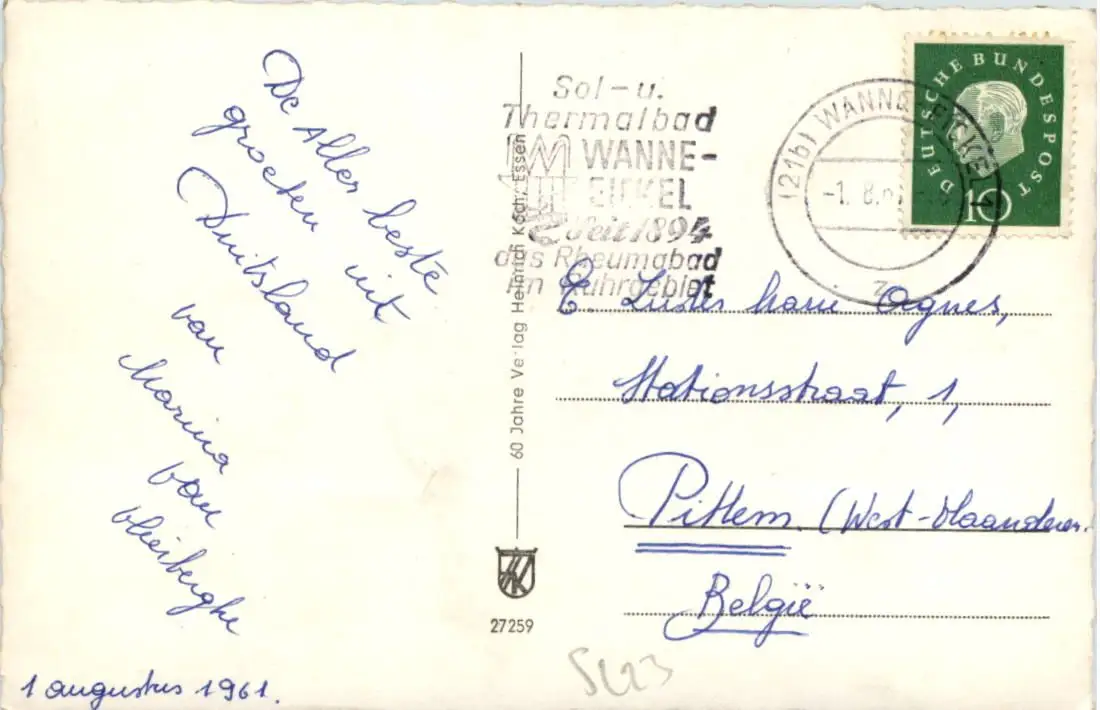 De Aller beste
groeten uit
Duitsland
van
Marina
van
1 augustus 1961.
60 Jahre Verlag Heinrich Koch, Essen
27259
Sol- u.
Thermalbad
WANNE-
EICKEL
Seit 1894
das Rheumabad
im Ruhrgebiet
(21b) WANNE-EICKEL 1
-1. 8.61
z
DEUTSCHE BUNDESPOST
10
E. Zuster Agnes,
Stationsstraat, 1,
Pittem (West-Vlaanderen
België